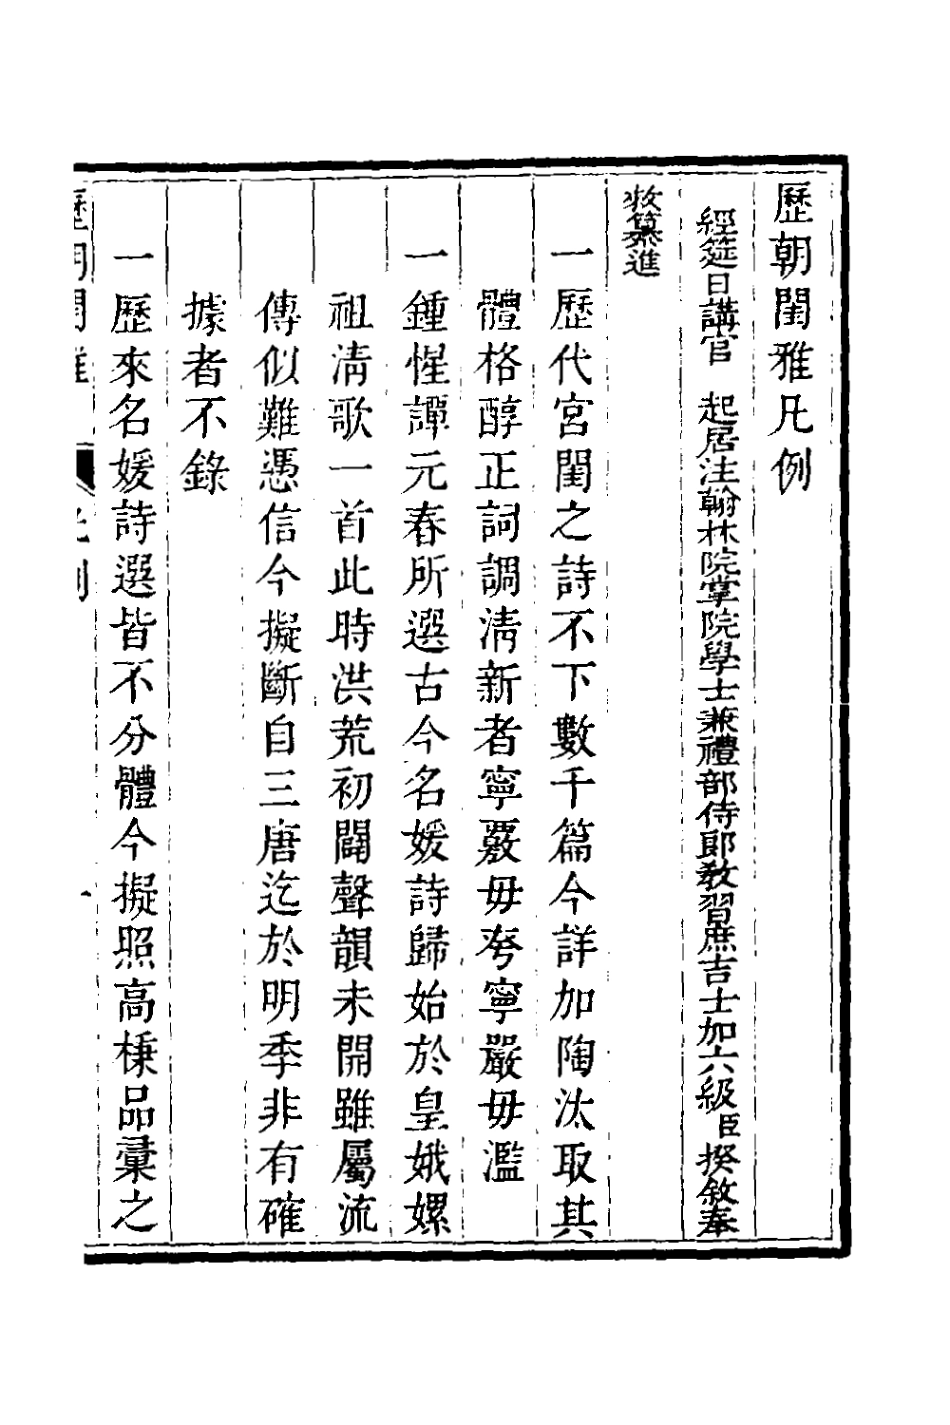 歷朝閨雅凡例
經筵日講官　起居注翰林院掌院學士兼禮部侍郎教習庶吉士加六級臣揆敘奉
敕纂進
一歷代宮閨之詩不下數千篇今詳加陶汰取其
體格醇正詞調清新者寧覈毋夸寧嚴毋濫
一鍾惺譚元春所選古今名媛詩歸始於皇娥嫘
祖清歌一首此時洪荒初闢聲韻未開雖屬流
傳似難憑信今擬斷自三唐迄於明季非有確
據者不錄
一歷來名媛詩選皆不分體今擬照高棅品彙之
歷朝閨雅　凡例　一